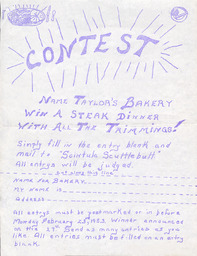 CONTEST
NAME TAYLOR'S BAKERY
WIN A STEAK DINNER
WITH ALL THE TRIMMINGS!
Simply fill in the entry blank and
mail to "Scintula Scuttlebutt"
All entries will be judged.
cut along this line
Name for Bakery
My Name is
Address
All entrys must be postmarked on or before
Monday February 25, Winner announced
on the 27th Send as many entries as you
like. All entries must be filled on an entry
blank.